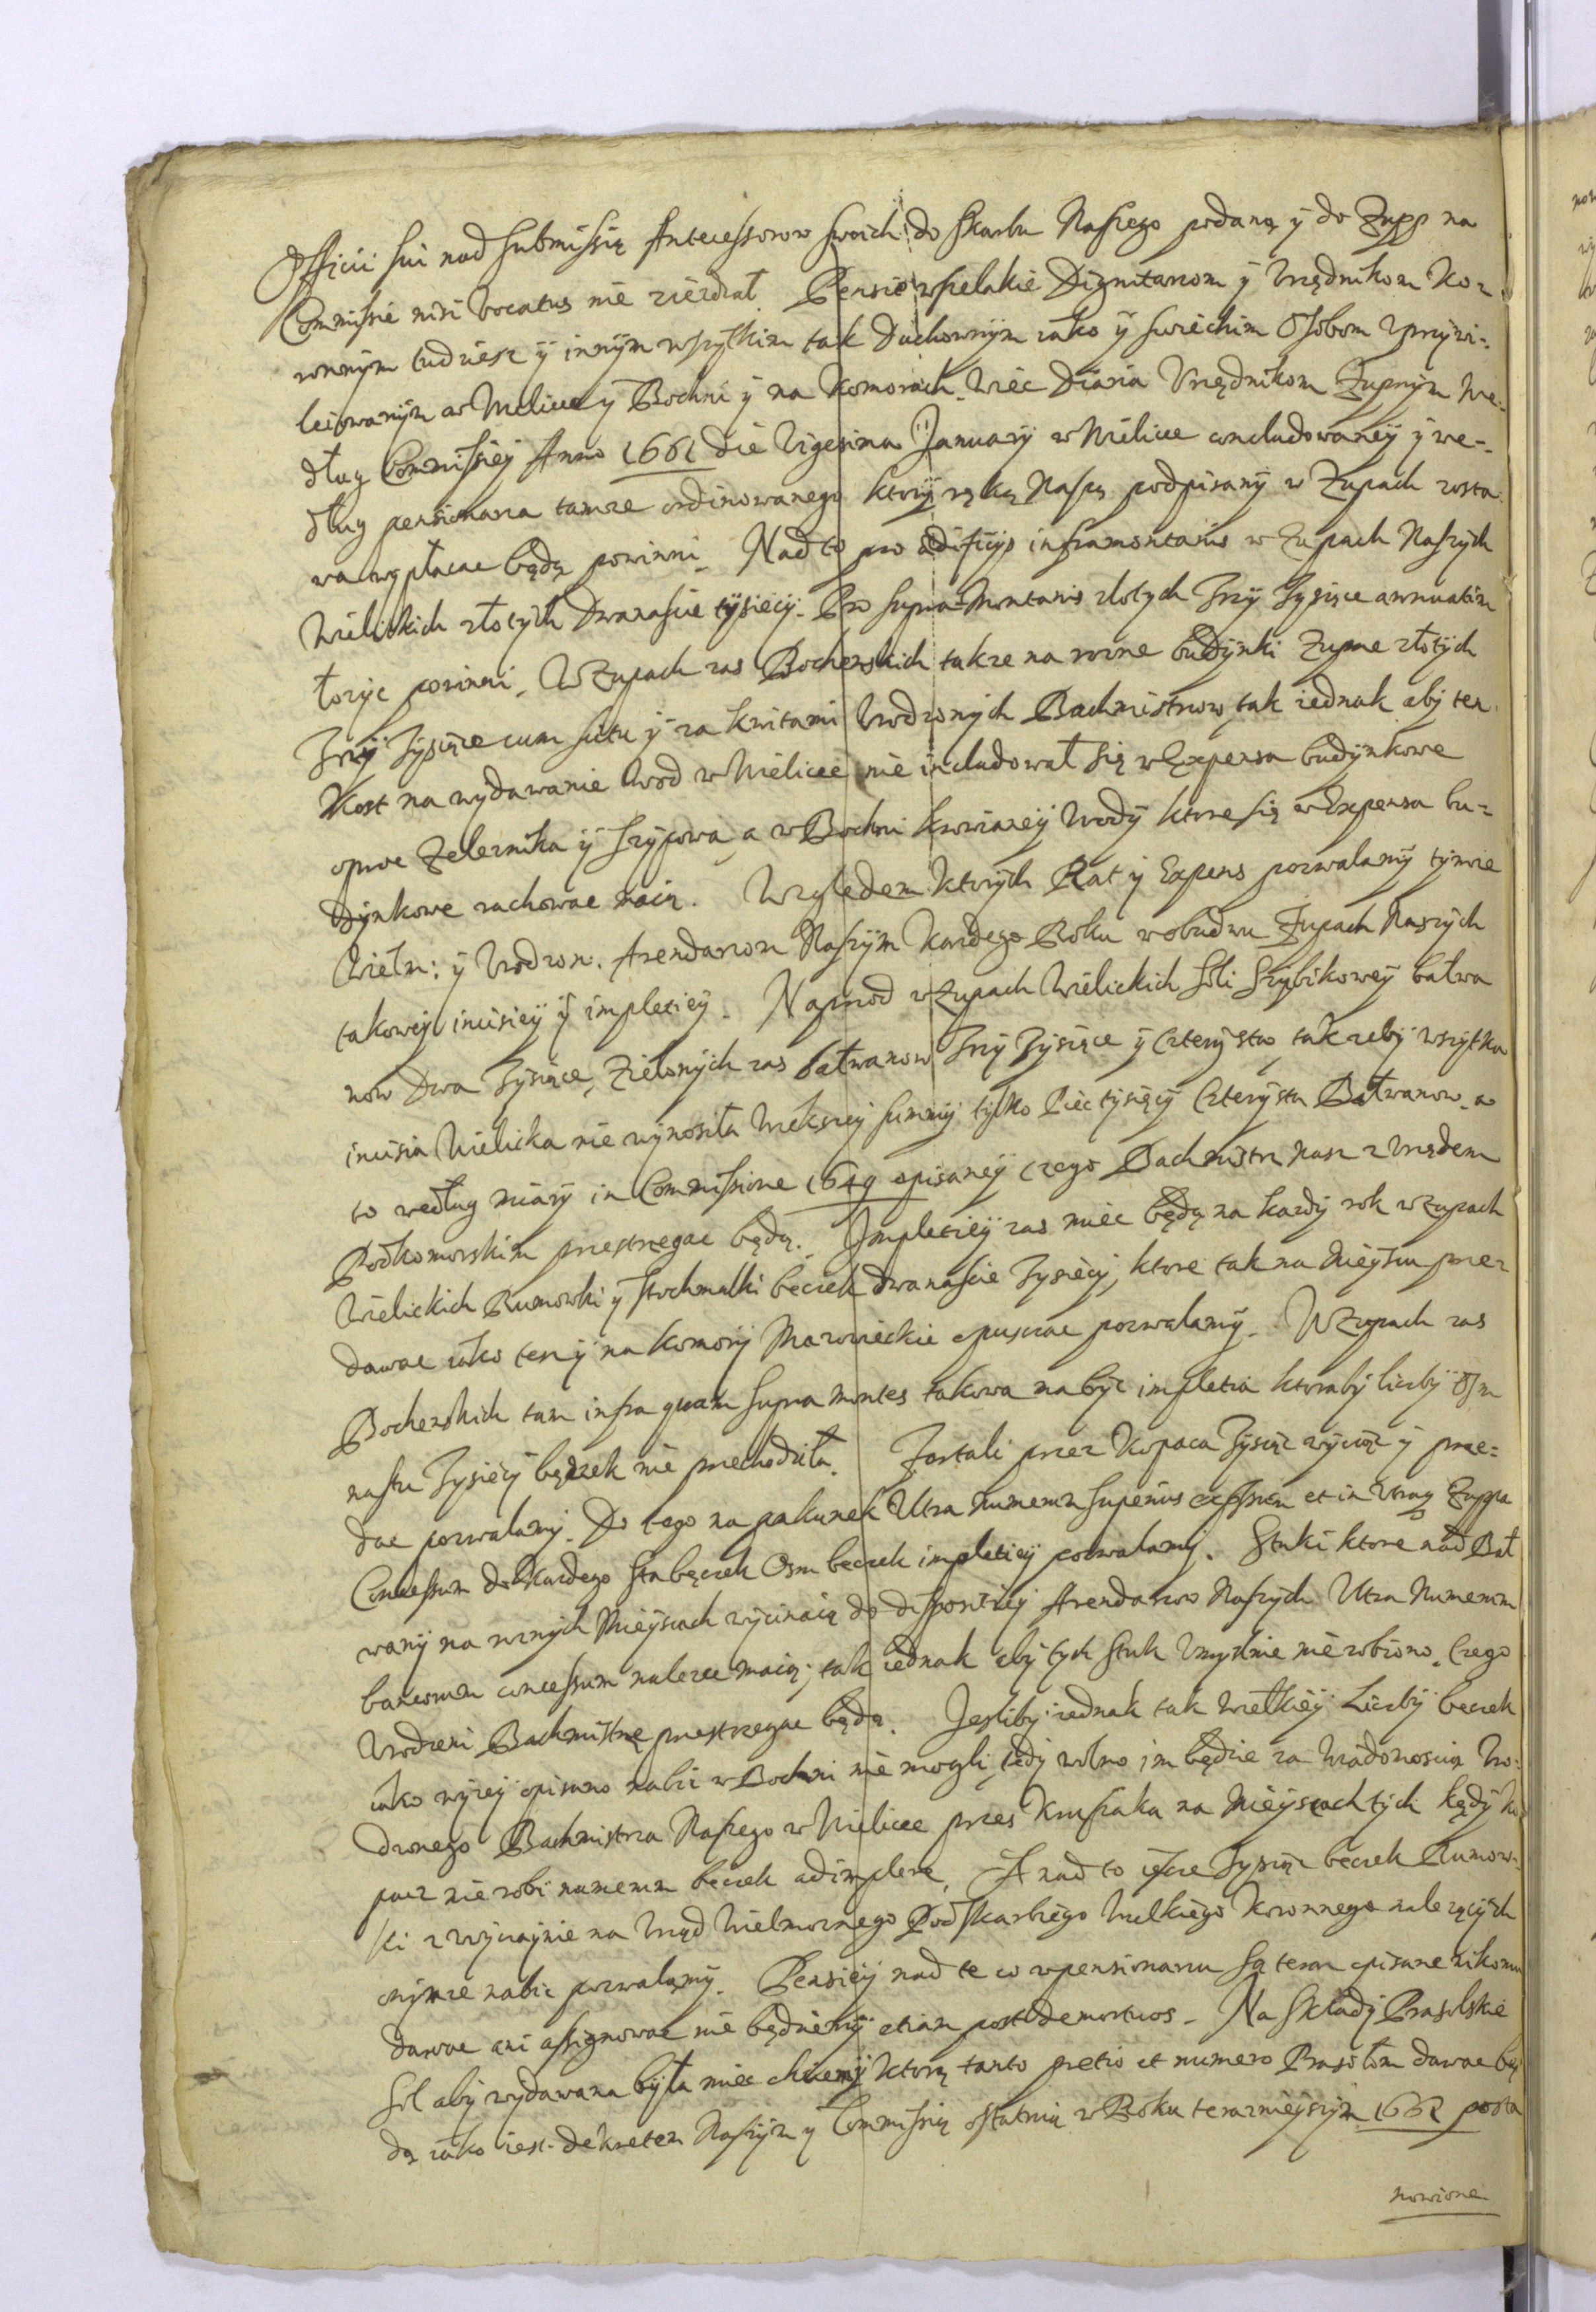 Officii sui nad submissią Antecessorow swoich do skarbu Naszego podaną ÿ do Zupp na
Commissie nisi vocatus nie ziezdzał. Pensie wszelakie Dignitarom ÿ Urzędnikom Ko-
ronnÿm tudziesz ÿ innÿm wszÿtkim tak Duchownÿm iako ÿ swieckim Osobom uprzÿwi-
leiowanÿm w Wielicce ÿ Bochni ÿ na Komorach. Wiec Diaria Urzędnikom Żupnÿm we-
dług Commissiey Anno 1661 die Vigesima Januarÿ w Wielicce concludowaneÿ ÿ we-
dług pensionarza tamze ordinowanego ktorÿ ręką Naszą podpisanÿ w Zupach zosta
wa wÿpłacac będą powinni. Nad to pro ædificÿs inframontanis w Zupach Naszÿch
Wielickich złotÿch dwanascie tÿsięcÿ. Pro supra-Montanis złotych Trzÿ Tysiące annuatim
łozÿc powinni. W Zupach zas Bochenskich takze na rozne budÿnki Zupne złotÿch
Trzÿ Tÿsiące cum scitu ÿ za kwitami Urodzonÿch Bachmistrzow tak iednak abÿ ten
Koszt na wydawanie wod w Wielicce nie includował się w Expensa budÿnkowe
oprocz Zelaznika ÿ Szÿpowa, a w Bochni Krowianeÿ wodÿ ktore się w Expensa bu-
dÿnkowe rachowac maią. Względem ktorÿch Rat ÿ Expens pozwalamÿ tÿmze
Wielm: ÿ Urodzon. Arendarzom Naszÿm Kazdego Roku w obudwu Żupach Naszÿch
takoweÿ incisiey ÿ impletieÿ. Naprzod w Zupach Wielickich Soli Szÿbikoweÿ bałwa
now Dwa Tÿsiące, Zielonÿch zas bałwanow Trzÿ Tÿsiące ÿ Cztery sta, tak zebÿ wszÿtka
incisia Wielicka nie wÿnosiła wiekszeÿ summÿ tylko Pięc tysięcÿ Czterÿsta Bałwanow. a
to według miarÿ in Commissione 1649 opisaneÿ czego Bachmistrz Nasz z Urzędem
Podkomorskim przestrzegac będą. Impletieÿ zas miec będą na kazdÿ rok w Zupach
Wielickich Rumowki ÿ stochmalki beczek dwanascie Tysięcÿ, ktore tak na mieÿscu prze-
dawac iako tesz ÿ na Komorÿ Mazowieckie spuszczac pozwalamÿ. W Zupach zas
Bochenskich tam infra quam supra montes takowa ma bÿc impletia ktorabÿ liczbÿ Osm
nastu Tysięcÿ bęczek nie przechodziła. Fortali przez Kopacza Tÿsiąc wÿciąc ÿ prze-
dac pozwalamÿ. Do tego na pakunek Ultra numerum superius expressum et in utraq Zuppa
Concessum do kazdego sta bęczek Osm beczek impletieÿ pozwalamÿ. Sztuki ktore nad Bał
wanÿ na roznÿch mieÿscach wÿcinaią do dispositieÿ Arendarzow Naszÿch Ultra numerum
bancorum concessum nalezec maią, tak iednak abÿ tych sztuk umyslnie nie robiono. Czego
Urodzeni Bachmistrze przestrzegac będą. Jesliby iednak tak wielkieÿ Liczbÿ beczek
iako wÿzeÿ opisano nabic w Bochni nie mogli, tedÿ wolno im będzie za wiadomoscią Uro-
dzonego Bachmistrza Naszego w Wielicce przes Kruszaka na mieÿscach tÿch kędÿ Ko
pacz nie robi numerum beczek adimplere. A nad to iescze Tysiąc beczek Rumow-
ki zwÿczaÿnie na Urząd Wielmoznego Podskarbiego Wielkiego Koronnego nalezącÿch
onÿmze nabic pozwalamÿ. Pensieÿ nad te co w pensionarzu są teraz opisane nikomu
dawac ani assignowac nie będziemÿ etiam post demortuos. Na składÿ Prasolskie
Sol abÿ wydawana bÿła miec chcemÿ ktorą tanto pretio et numero Prasołom dawac bę
dą iako iest dekretem Naszÿm ÿ Commissią ostatnią w Roku teraznieÿszÿm 1661 posta
nowione